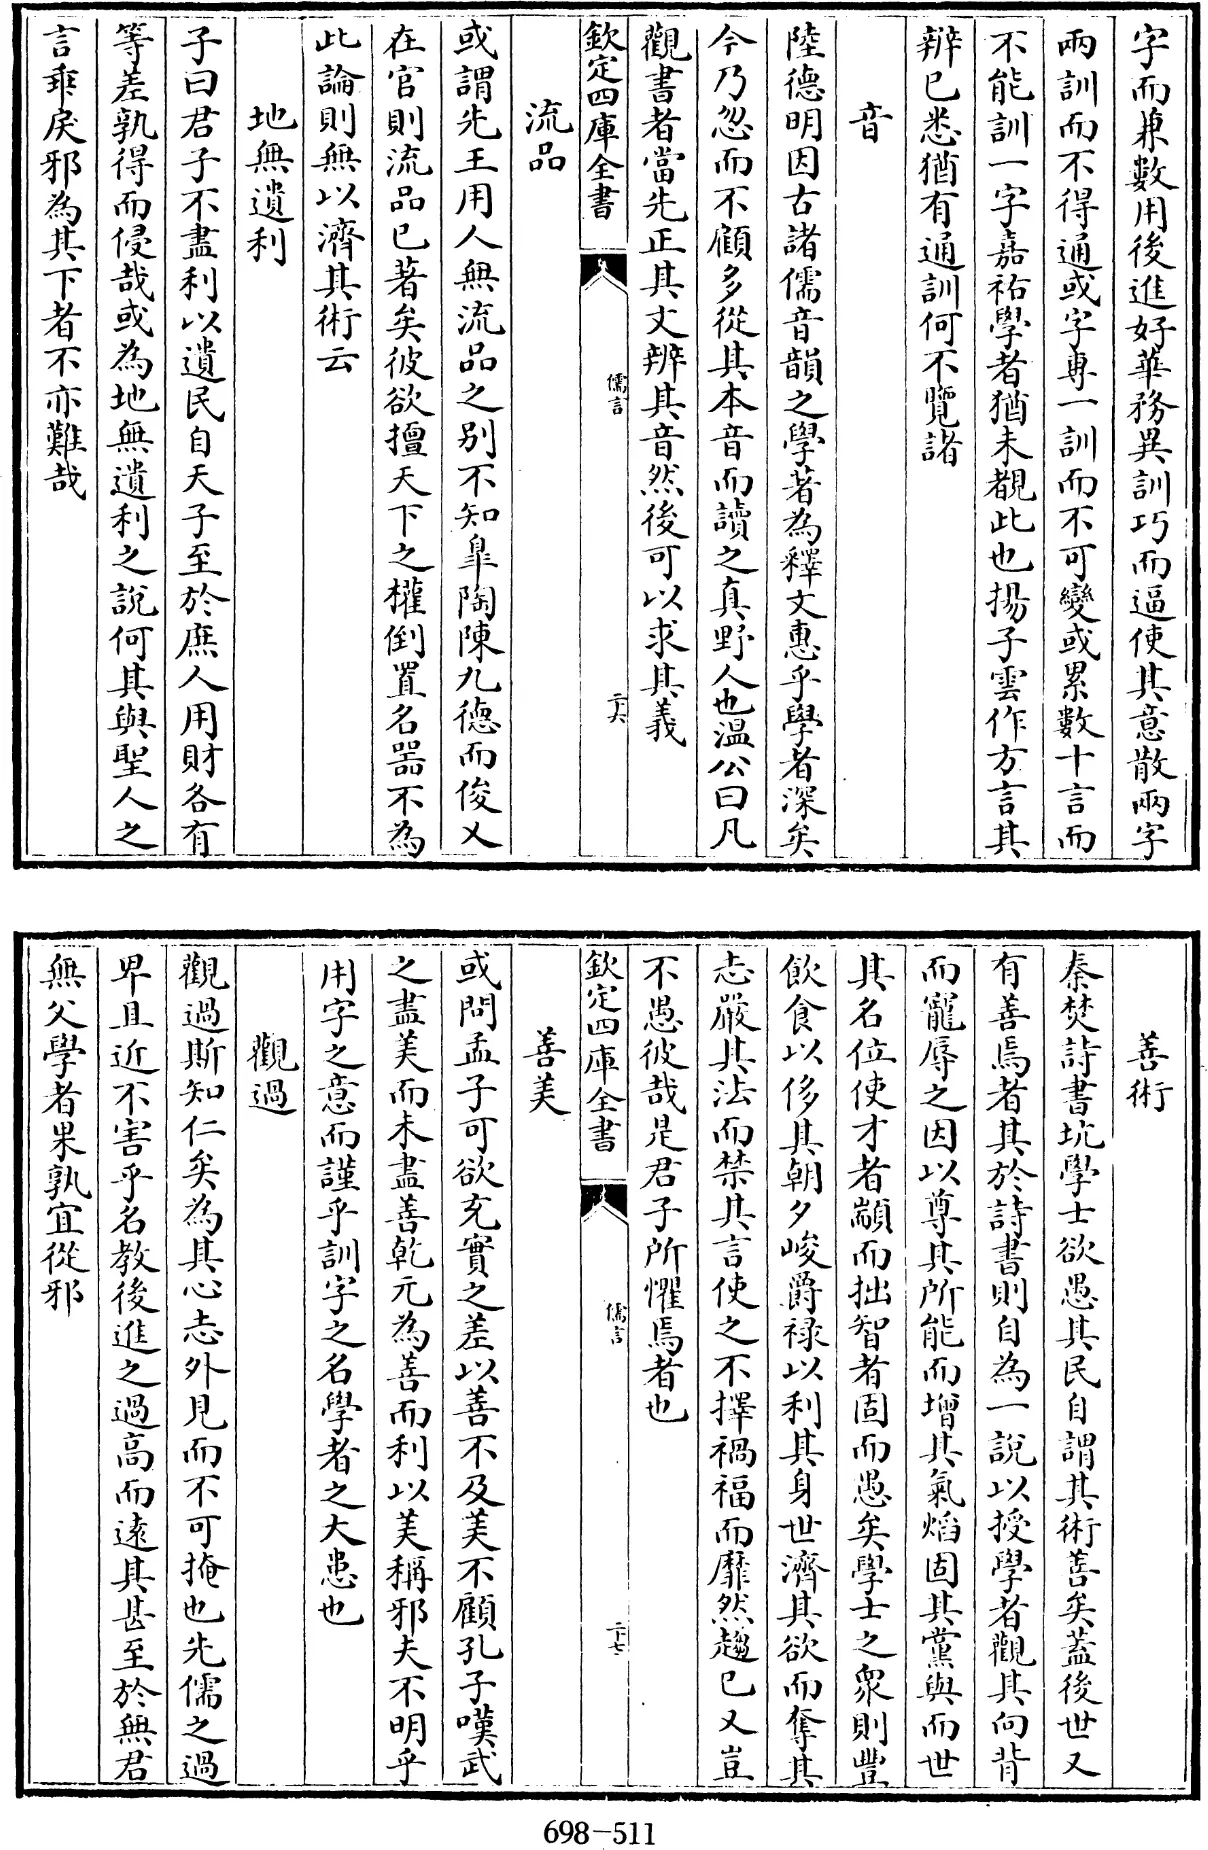 字而兼數用後進好華務異訓巧而逼使其意散兩字
兩訓而不得通或字專一訓而不可變或累數十言而
不能訓一字嘉祐學者猶未覩此也揚子雲作方言其
辯已悉猶有通訓何不覽諸
音
陸德明因古諸儒音韻之學著為釋文惠乎學者深矣
今乃忽而不顧多從其本音而讀之真野人也温公曰凡
觀書者當先正其文辨其音然後可以求其義
欽定四庫全書
儒言
二十六
流品
或謂先王用人無流品之别不知臯陶陳九德而俊乂
在官則流品已著矣彼欲擅天下之權倒置名器不為
此論則無以濟其術云
地無遺利
子曰君子不盡利以遺民自天子至於庶人用財各有
等差孰得而侵哉或為地無遺利之說何其與聖人之
言乖戾邪為其下者不亦難哉
善術
秦焚詩書坑學士欲愚其民自謂其術善矣蓋後世又
有善焉者其於詩書則自為一說以授學者觀其向背
而寵辱之因以尊其所能而增其氣焰固其黨與而世
其名位使才者顓而拙智者固而愚矣學士之衆則豐
飲食以侈其朝夕峻爵禄以利其身世濟其欲而奪其
志嚴其法而禁其言使之不擇禍福而靡然趨已又豈
不愚彼哉是君子所懼焉者也
欽定四庫全書
儒言
二十七
善美
或問孟子可欲充實之差以善不及美不顧孔子嘆武
之盡美而未盡善乾元為善而利以美稱邪夫不明乎
用字之意而謹乎訓字之名學者之大患也
觀過
觀過斯知仁矣為其心志外見而不可掩也先儒之過
卑且近不害乎名教後進之過高而遠其甚至於無君
無父學者果孰宜從邪
698-511